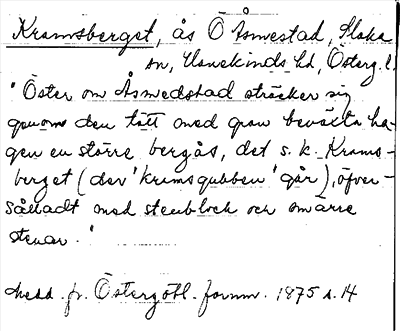 Kramsberget, ås Ö Åsmestad, Slaka
sn, Hanekinds hd, Österg.l.
"Öster om Åsmedstad sträcker sig
genom den tätt med gran beväxta ha-
gen en större bergås, det s. k. Krams-
berget (der 'kramsgubben' går), öfver-
sålladt med stenblock och smärre
stenar."
Medd. fr. Östergötl. fornm. 1875 s. 14